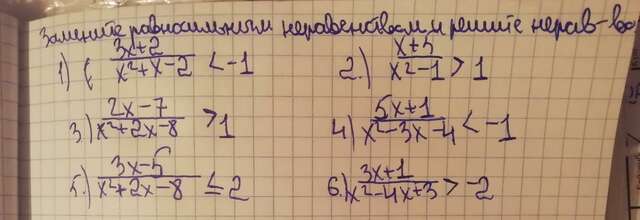 Замените равносильным неравенством и решите нерав-во
1) ( (3x+2)/(x²+x-2) < -1 2.) (x+5)/(x²-1) > 1
3.) (2x-7)/(x²+2x-8) > 1 4) (5x+1)/(x²-3x-4) < -1
5.) (3x-5)/(x²+2x-8) ≤ 2 6.) (3x+1)/(x²-4x+3) > -2